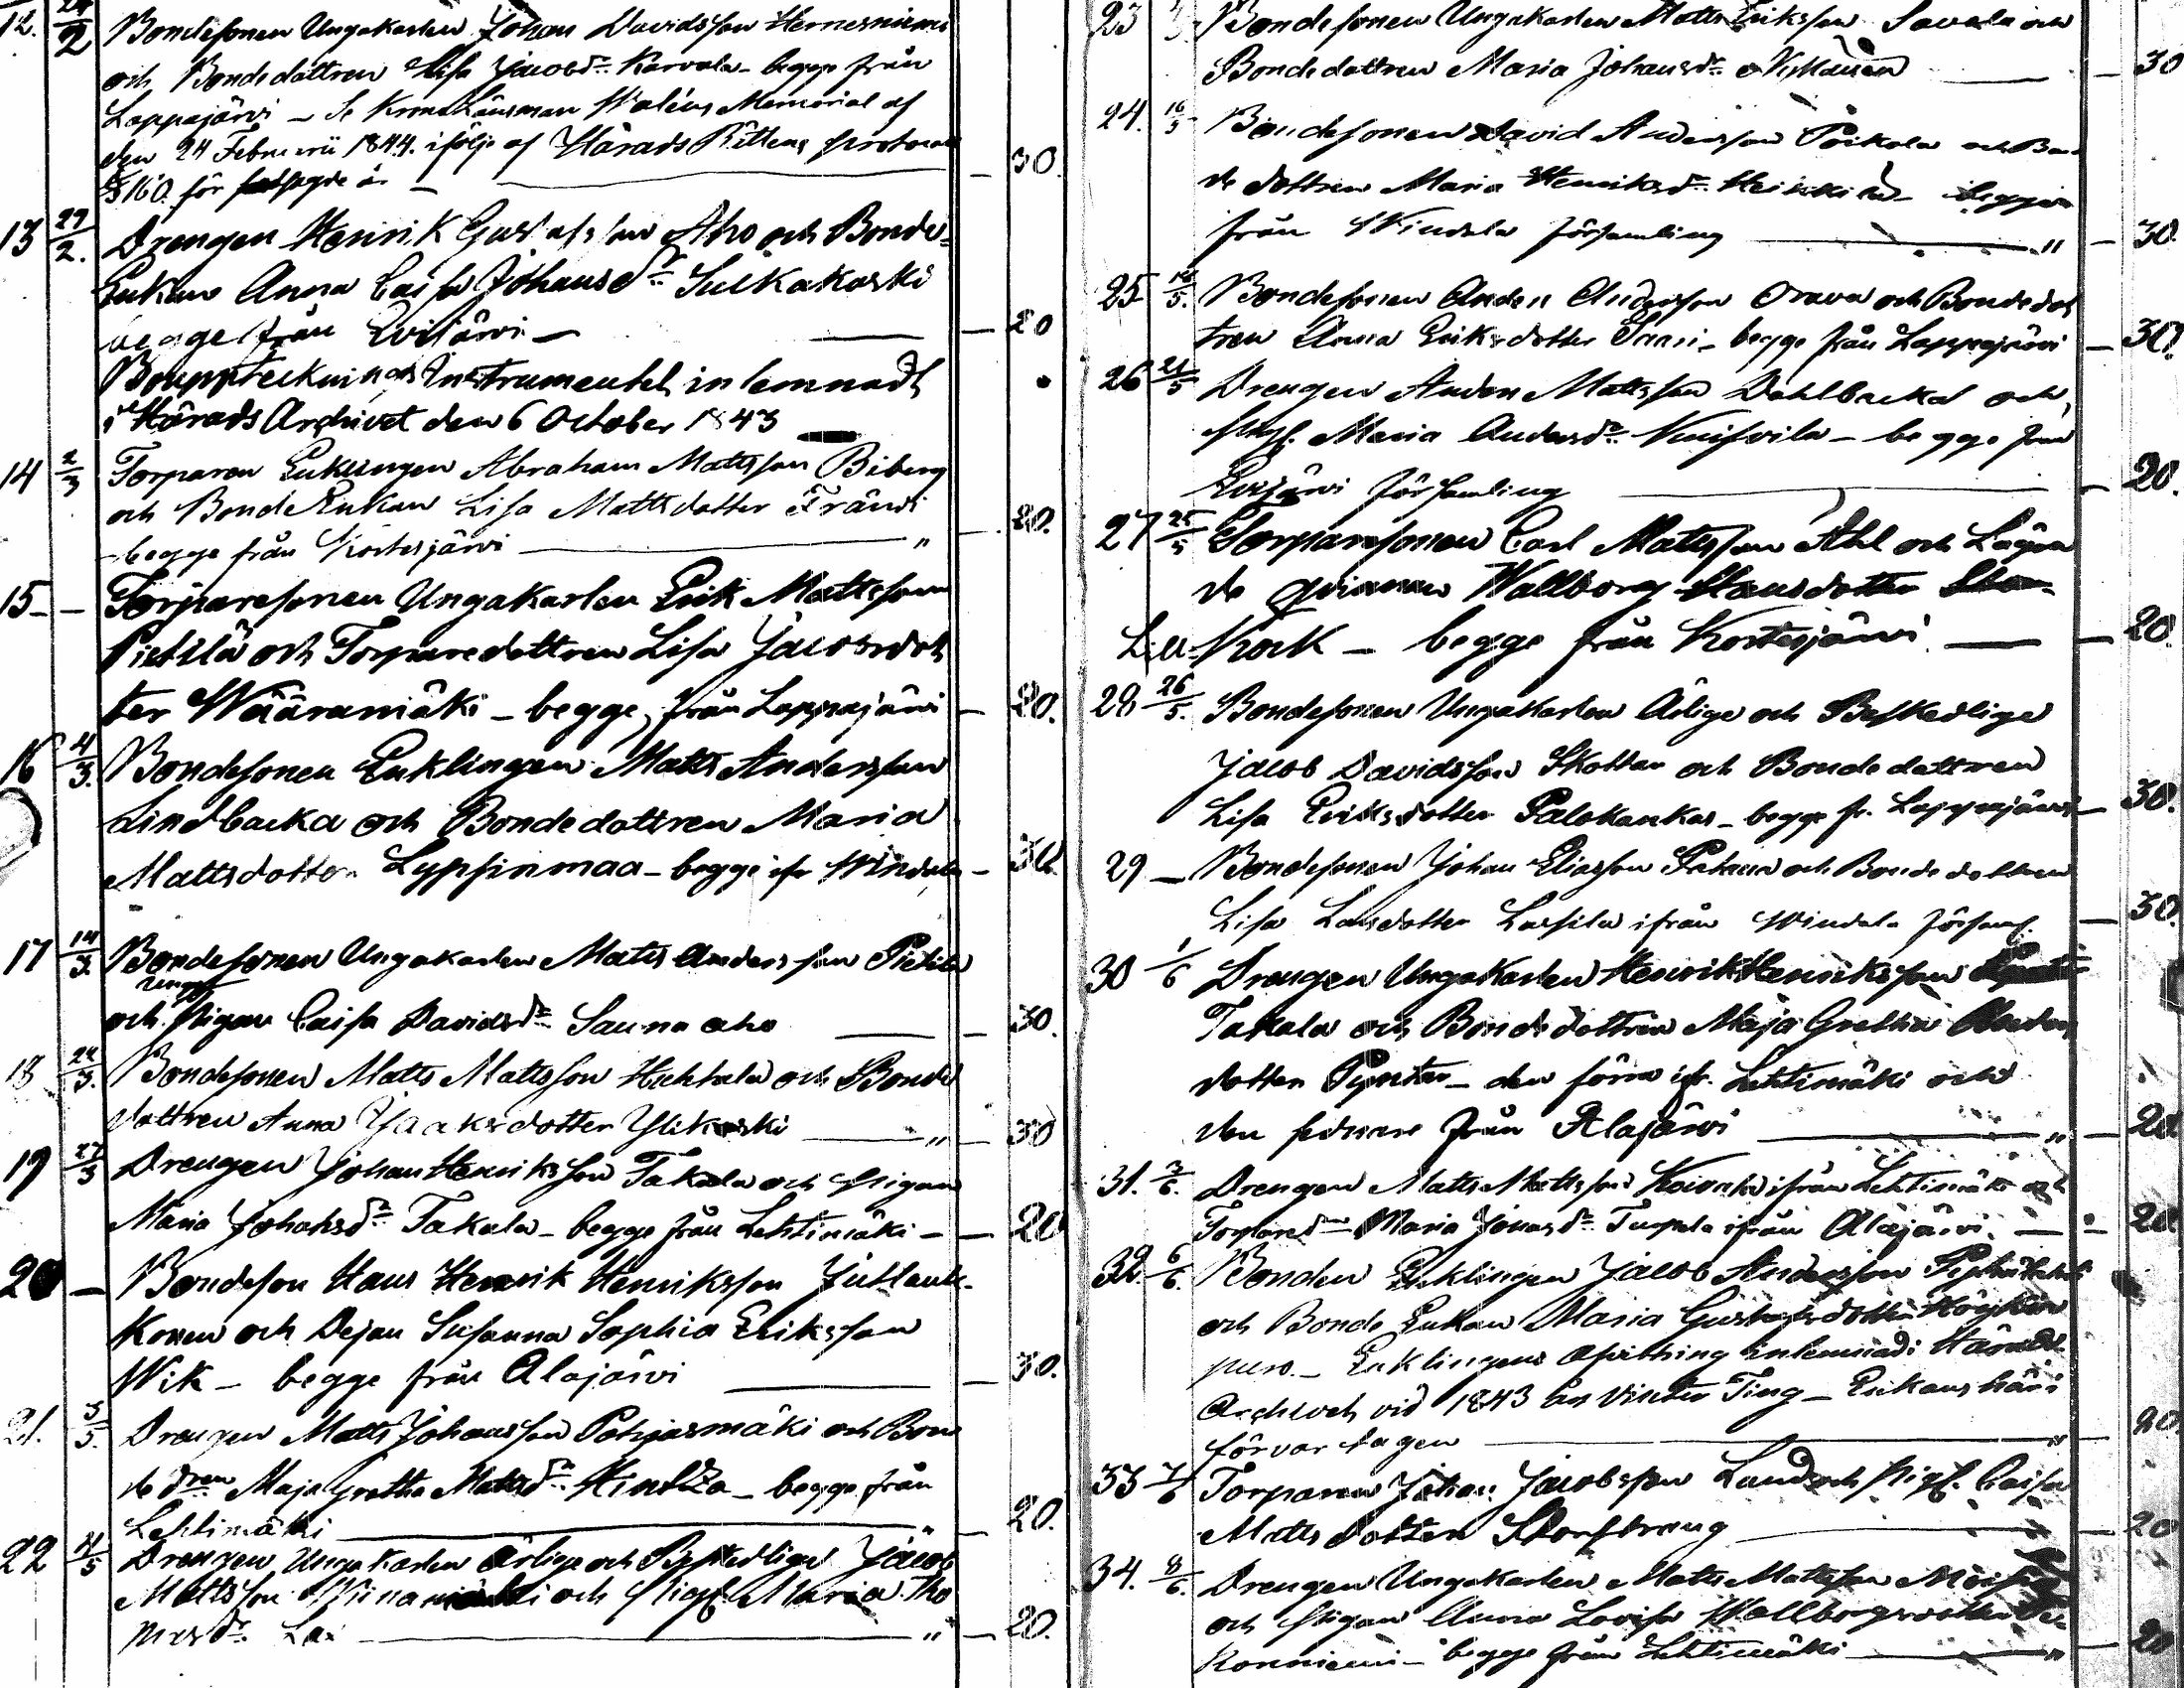 12. 24/2 Bondesonen Ungakarlen Johan Davidsson Hernesniemi
och Bondedottren Lisa Jacobsdr Karvala - begge från
Lappajärvi - Se KronoLänsman Memorial af
den 24 Februarii 1844. ifölje af HäradsRättens protocoll
§ 160. för sagde år - 30.
13 29/2. Drengen Henrik Gustafsson Aho och Bonde-
Enkan Anna Caisa Johansdr Sulkakoski
begge från Evijärvi - 20
Bouppteknings Instrumentet inlemnadt
i Härads Archivet den 6 October 1843
14 2/3 Torparen Enklingen Abraham Mattsson Biberg
och BondeEnkan Lisa Mattsdotter Frändi
begge från Kortesjärvi " 20.
15 - Torparesonen Ungakarlen Erik Mattsson
Pietilä och Torparedottren Lisa Jacobsdot
ter Wääramäki - begge från Lappajärvi - 20.
16 4/3. Bondesonen Enklingen Matts Andersson
Lindbacka och Bondedottren Maria
Mattsdotter Lypsinmaa - begge ifr Windala - 30.
17 14/3 Bondesonen Ungakarlen Matts Andersson Pietilä
och Pigan Caisa Davidsdr Saunaaho - 30.
18 24/3. Bondesonen Matts Mattsson Huhtala och Bonde
dottren Anna Jaaksdotter Ylikoski " - 30
19 27/3 Drengen Johan Henriksson Takala och Pigan
Maria Johansdr Takala - begge från Lehtimäki - 20
20 - Bondeson Hans Henrik Henriksson
Konen och Dejan Susanna Sophia Eriksson
Wik - begge från Alajärvi - 30.
21. 3/5. Drengen Matts Johansson Pohjasmäki och Bon
dedren Maja Gretha Mattsdr - begge från
Lehtimäki " - 20.
22 4/5 Drengen Ungakarlen Ärlige och Beskedlige Jacob
Mattsson och Pig. Maria Tho
masdr Lax " - 20.
23 Bondesonen Ungakarlen Matts Eriksson Savola och
Bondedottren Maria Johansdr - 30
24. Bondesonen David Andersson och Bon-
dedottren Maria Henriksdr Heikkilä - begge
från Windala församling " - 30.
25 Bondesonen Anders Andersson Orava och Bondedot
tren Anna Eriksdotter Saari - begge från Lappajärvi - 30.
26 Drengen Anders Mattsson Dahlbacka och
Pig. Maria Andersdr - begge från
Evijärvi församling - 20.
27 25/5 Torparesonen Carl Mattsson Ahl och Lägra
de qvinnan Wallborg Hansdotter
Lill Kock - begge från Kortesjärvi - 20.
28 26/5. Bondesonen Ungakarlen Ärlige och Beskedlige
Jacob Davidsson Skottar och Bondedottren
Lisa Eriksdotter Palokankas - begge fr. Lappajärvi - 30.
29 - Bondesonen Johan Eliasson och Bondedottren
Lisa Larsdotter Lassila ifrån Windala Församl. - 30.
30 1/6 Drengen Ungakarlen Henrik Henriksson
Takala och Bondedottren Maja Gretha Anders
dotter - den förra ifr. Lehtimäki och
den sednare från Alajärvi " - 20
31. 3/6. Drengen Matts Mattsson ifrån Lehtimäki och
Torparedr Maria Jonasdr ifrån Alajärvi. - 20
32. 6/6. Bonden Enklingen Jacob Andersson
och Bonde Enkan Maria Gustafsdotter
Enklingens afvittring inlemnad i Härads
Archivet vid 1843 års Vinter Ting - Enkans här i
förvar tagen " 20
33 7/6 Torparen Johan Jacobsson Lund och Pig. Caisa
Mattsdotter Storstrang - 20
34. 8/6. Drengen Ungakarlen Matts Mattsson
och Pigan Anna Lovisa Wallborgsdotter
Konniemi - begge från Lehtimäki " - 20